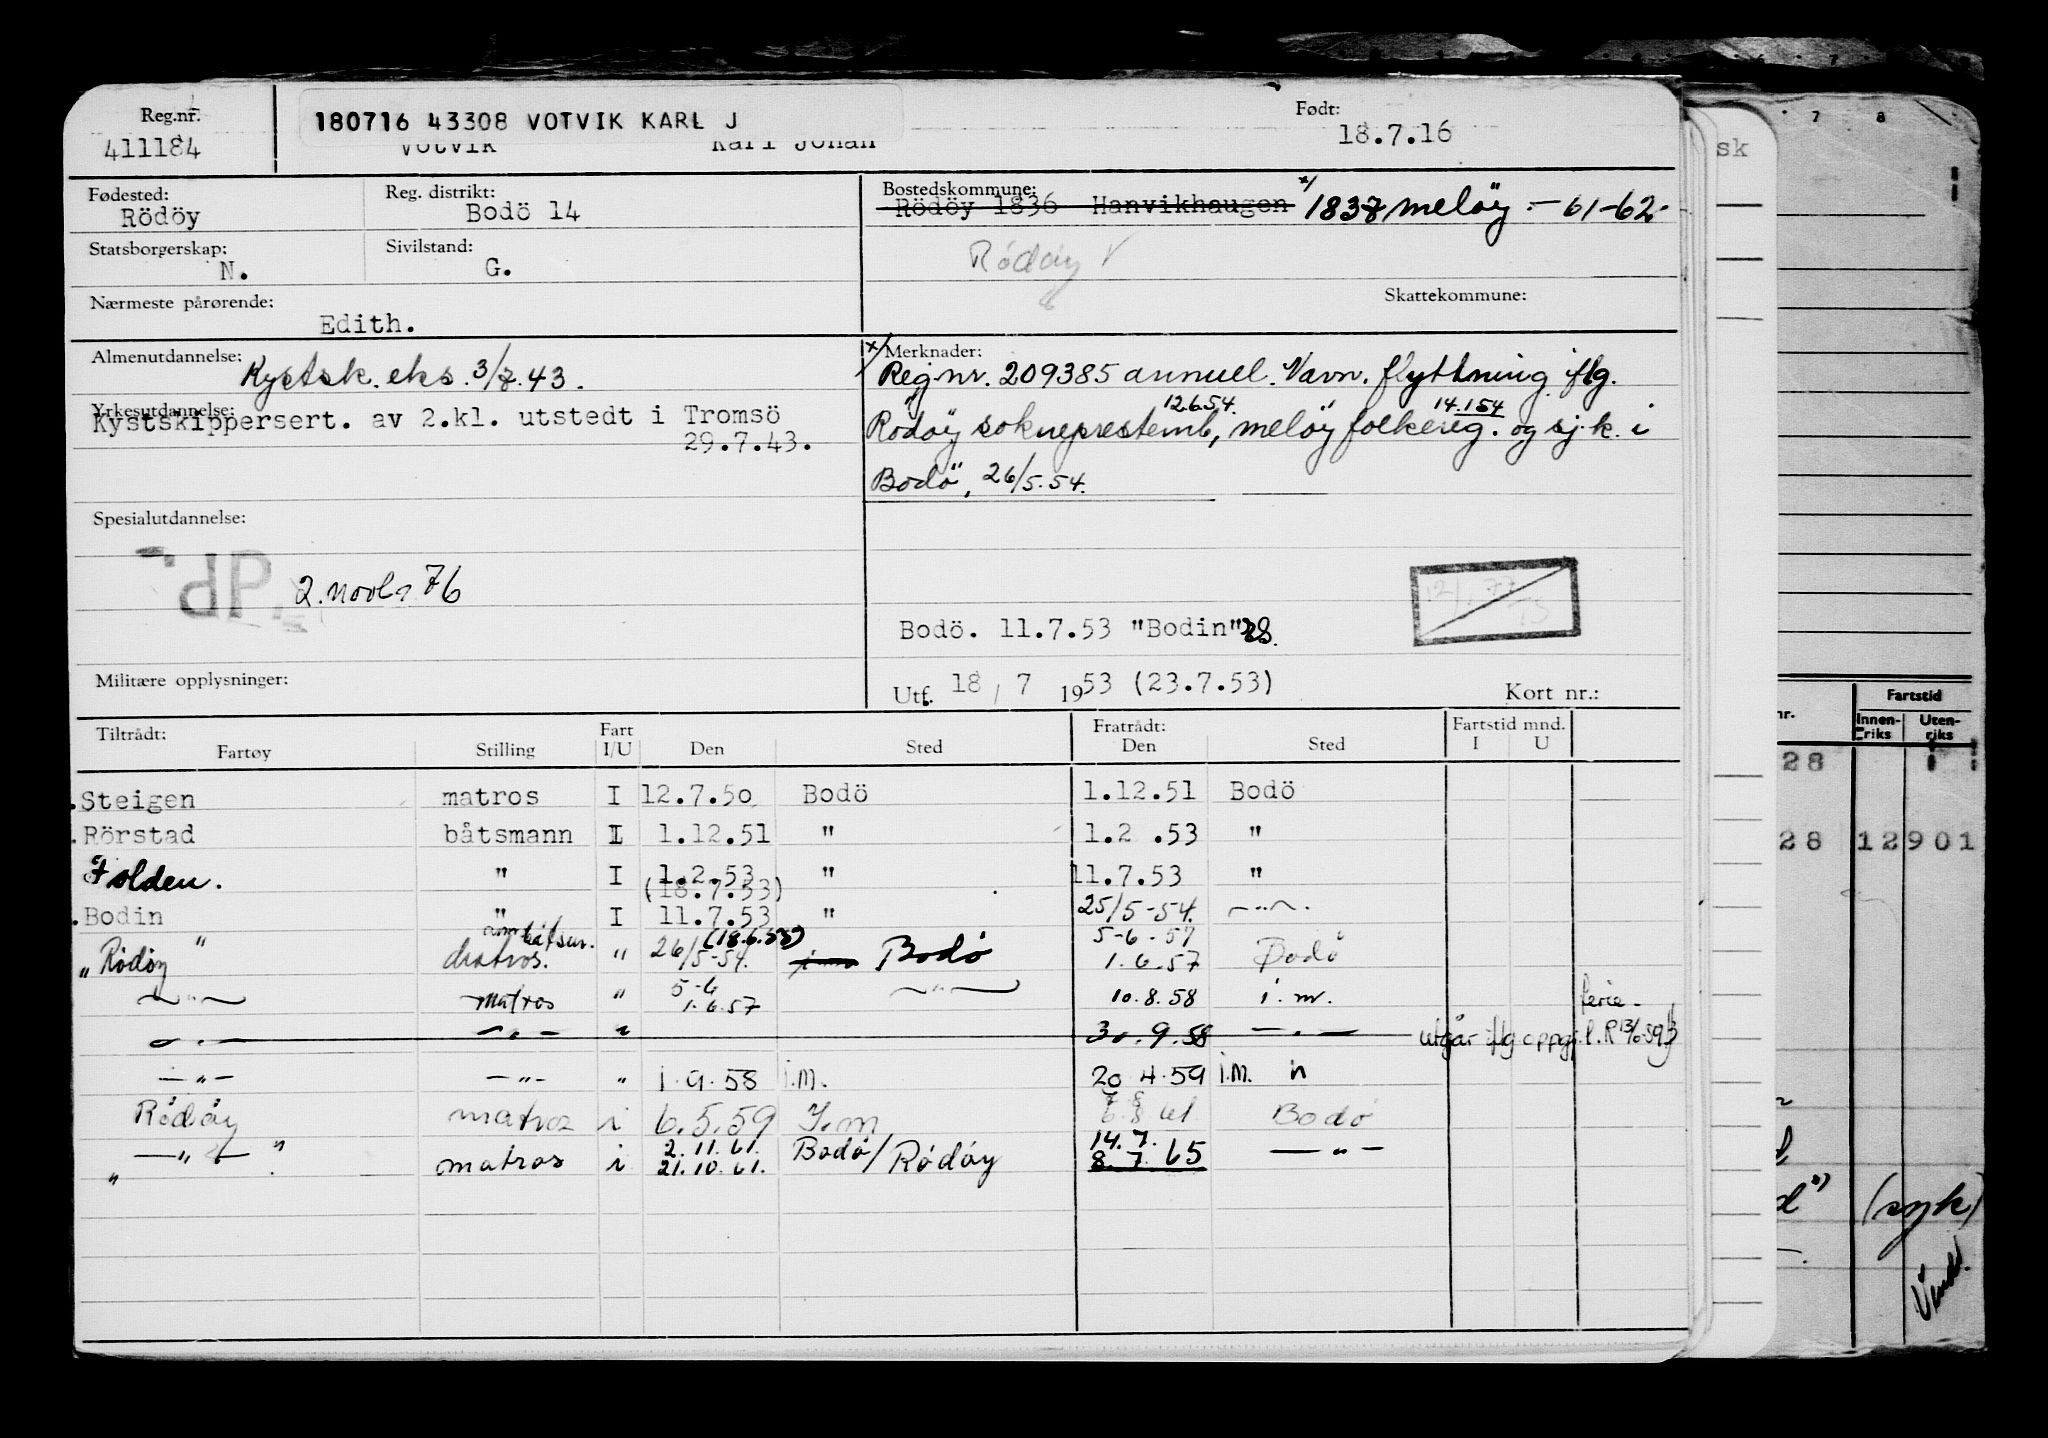 Reg.nr. 180716 43308 VOTVIK KARL J Født:
411184 Votvik Karl Johan 18.7.16
Fødested: Reg. distrikt: Bostedskommune:
Rödöy Bodö 14 Rödöy 1836 Hanvikhaugen x/ 1837 Meløy - 61-62-
Statsborgerskap: Sivilstand: Rödöy V
N. G.
Nærmeste pårørende: Skattekommune:
Edith.
Almenutdannelse: x/ Merknader:
Kystsk. eks. 3/7.43. Reg.nr. 209385 annuell. Navn. flyttning iflg.
Yrkesutdannelse: 12.6.54. 14.1.54
Kystskippersert. av 2.kl. utstedt i Tromsö Rødøy sokneprestemb, meløy folkereg. og sj.k. i
29.7.43. Bodö, 26/5.54.
Spesialutdannelse:
dP. 2. 76
Bodö. 11.7.53 "Bodin"
Militære opplysninger: Utf. 18 / 7 1953 (23.7.53) Kort nr.:
Tiltrådt: Fart Fratrådt: Fartstid mnd.
Fartøy Stilling I/U Den Sted Den Sted I U
Steigen matros I 12.7.50 Bodö 1.12.51 Bodö
Rörstad båtsmann I 1.12.51 " 1.2 .53 "
Folden. " I 1.2.53 " 11.7.53 "
(18.7.53)
Bodin " I 11.7.53 " 25/5-54. -"-
båtsm. (18.6.58) 5-6-57
"Rödöy" matros. " 26/5-54. Bodö 1.6.57 Bodö
5-6
-"- matros " 1.6.57 -"- 10.8.58 i.m. ferie-
-"- -"- " 30.9.58 -"- utgår iflg oppg.
-"- -"- " 1.9.58 i.M. 20 4.59 i.M. "
7 8
Rödöy matros i 6.5.59 I.m 6.8 61. Bodö
2.11.61. 14.7.
" -"- " matros i 21.10.61. Bodö/Rödöy 8.7.65 -"-
7 8
sk
nr. Fartstid
Innen-riks Uten-riks
28
28 12901
(syk)